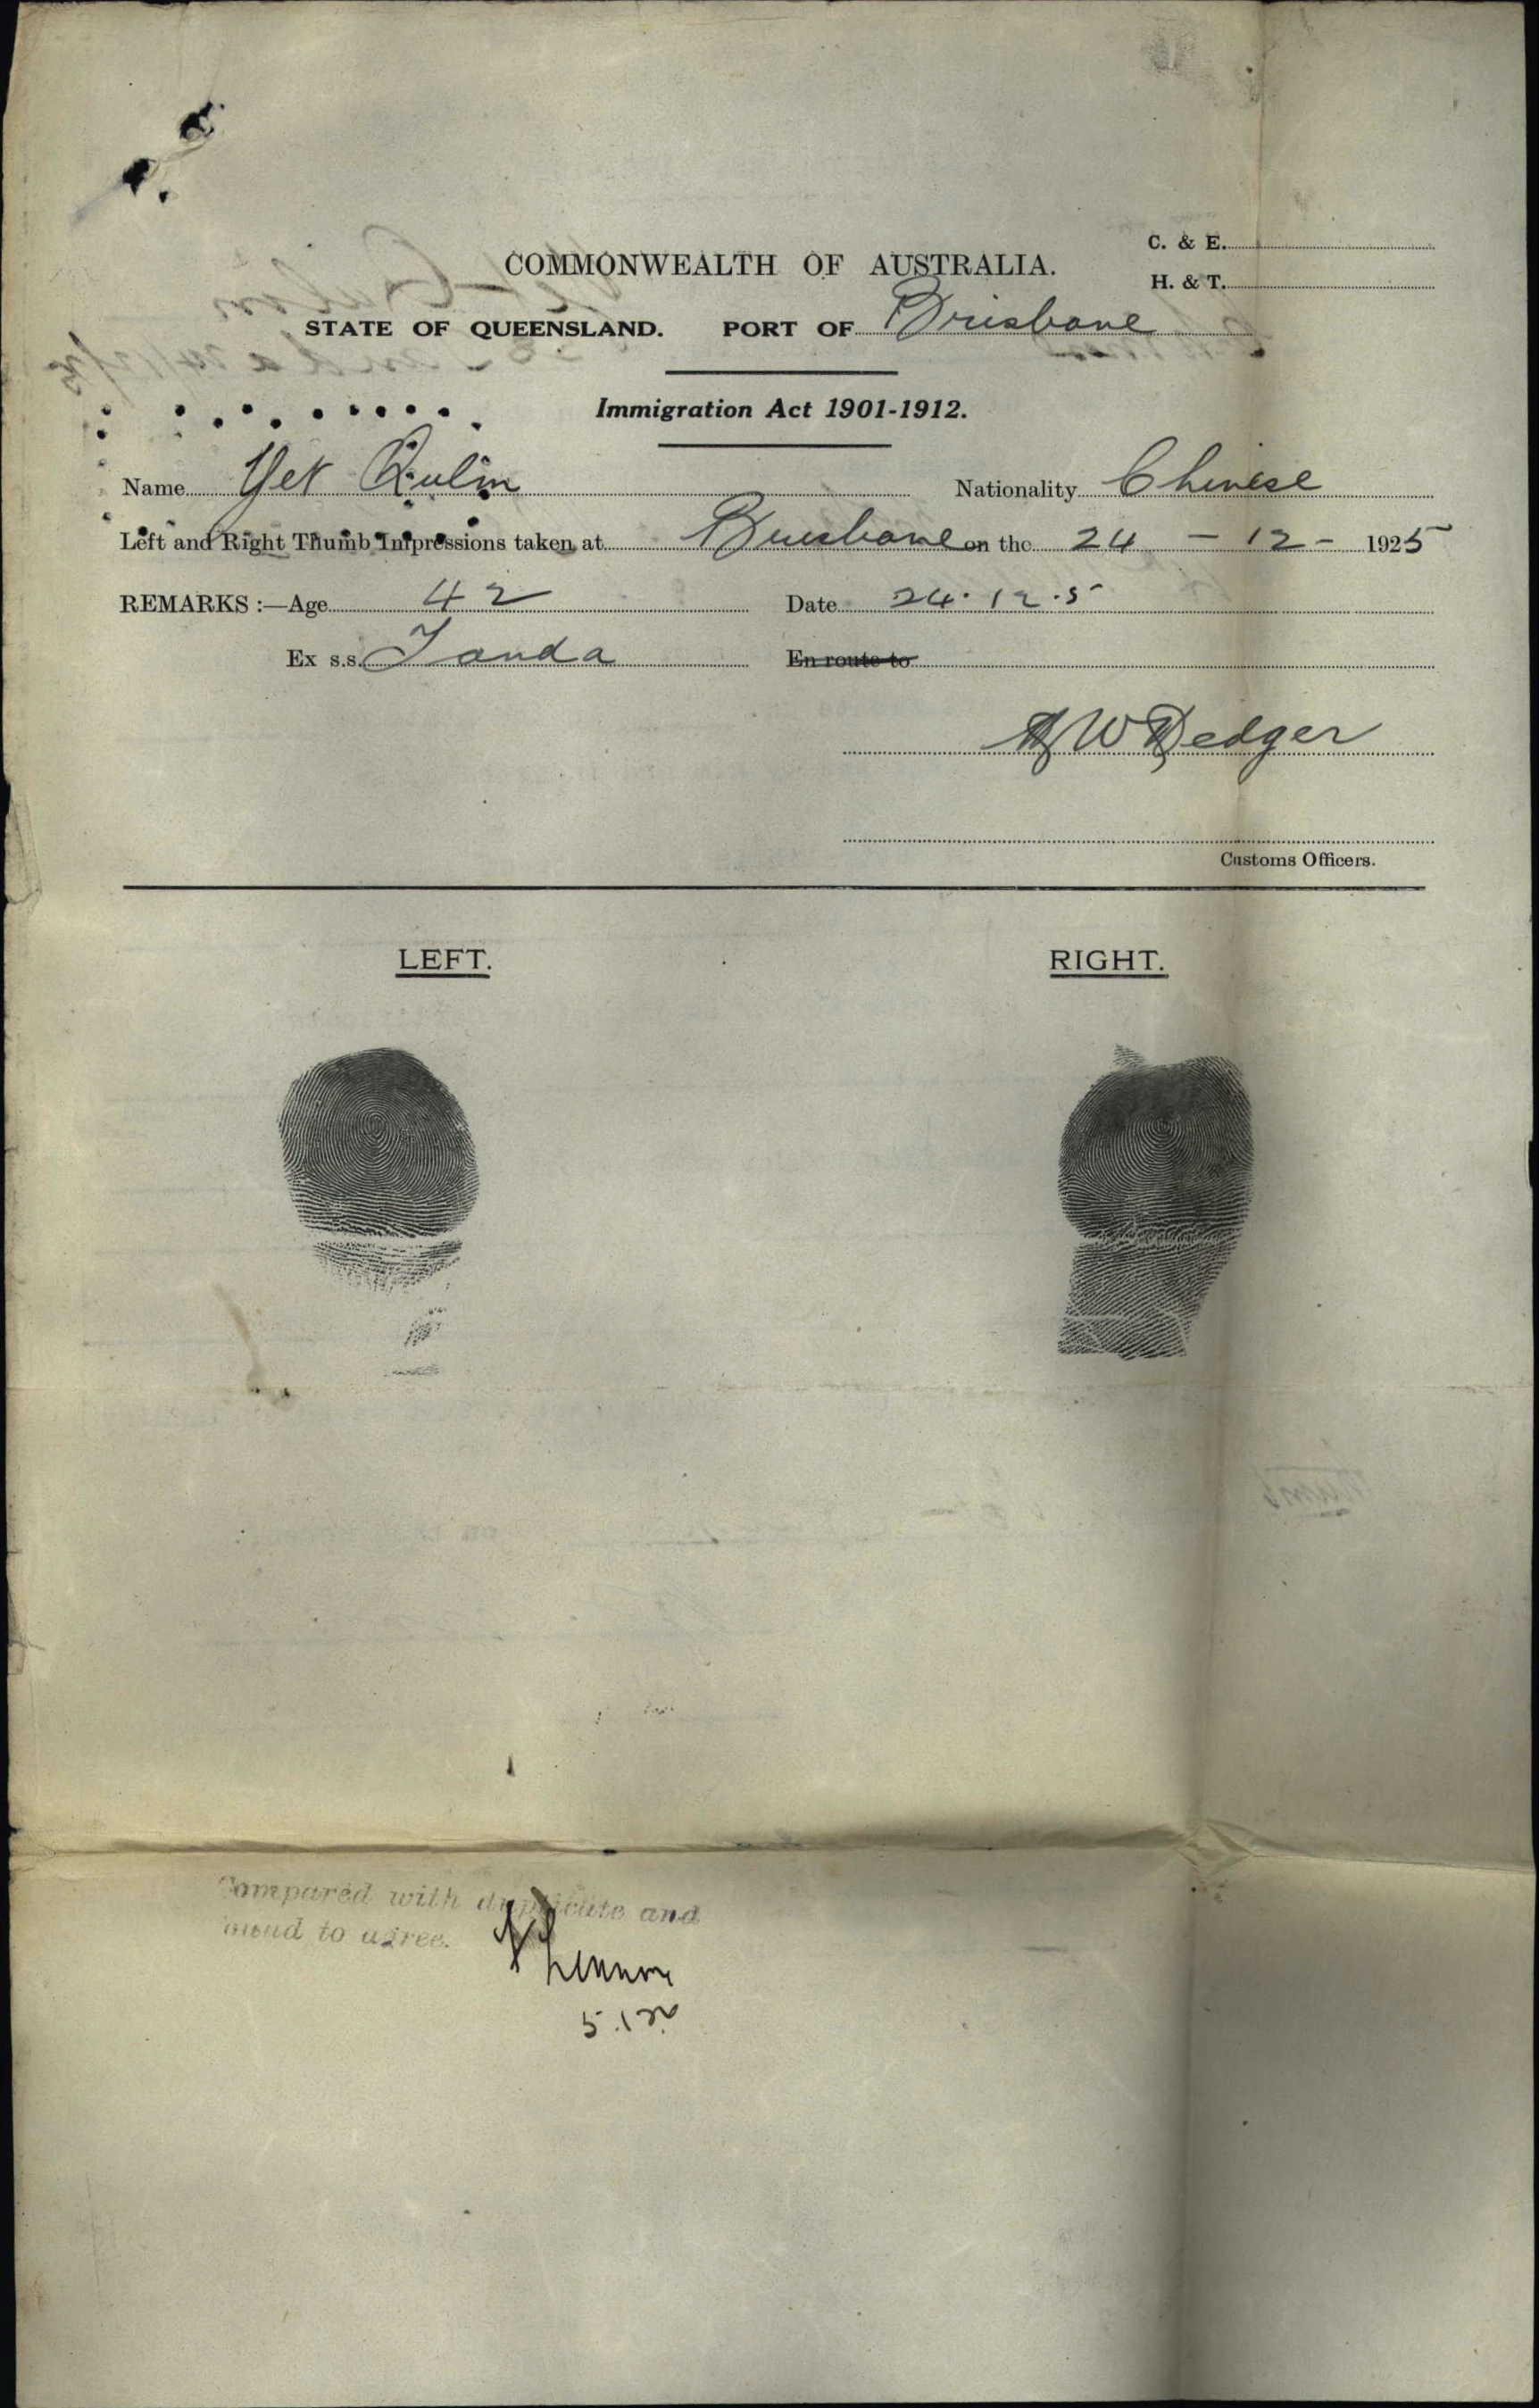 C. & E.
COMMONWEALTH OF AUSTRALIA.
H. & T.
STATE OF QUEENSLAND. PORT OF Brisbane
Immigration Act 1901-1912.
Name Yet Qulin Nationality Chinese
Left and Right Thumb Impressions taken at Brisbane on the 24 - 12 - 1925
REMARKS :—Age 42 Date 24.12.5
Ex s.s. Tanda En route to
Dedger
Customs Officers.
LEFT. RIGHT.
Compared with duplicate and
found to agree.